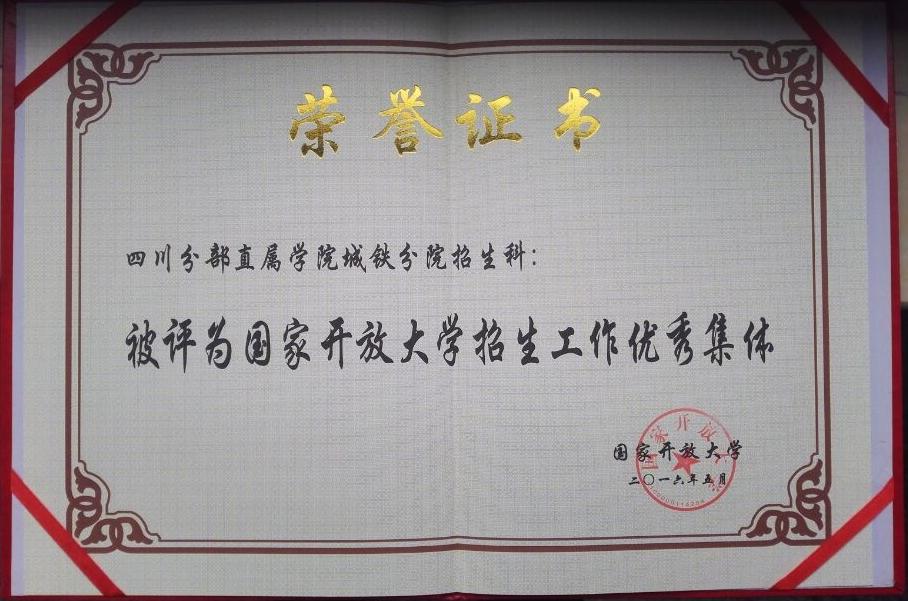 荣誉证书
四川分部直属学院城铁分院招生科：
被评为国家开放大学招生工作优秀集体
国家开放大学
二〇一六年五月